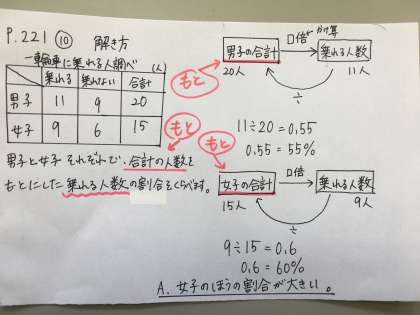 P.221 ⑩ 解き方
一輪車に乗れる人調べ (人)
乗れる 乗れない 合計
男子 11 9 20
女子 9 6 15
男子と女子それぞれで、合計の人数を
もとにした乗れる人数の割合をくらべます。
□倍 かけ算
男子の合計 乗れる人数
もと 20人 11人
÷
11÷20=0.55
0.55=55%
もと もと
□倍
女子の合計 乗れる人数
15人 9人
÷
9÷15=0.6
0.6=60%
A. 女子のほうの割合が大きい。